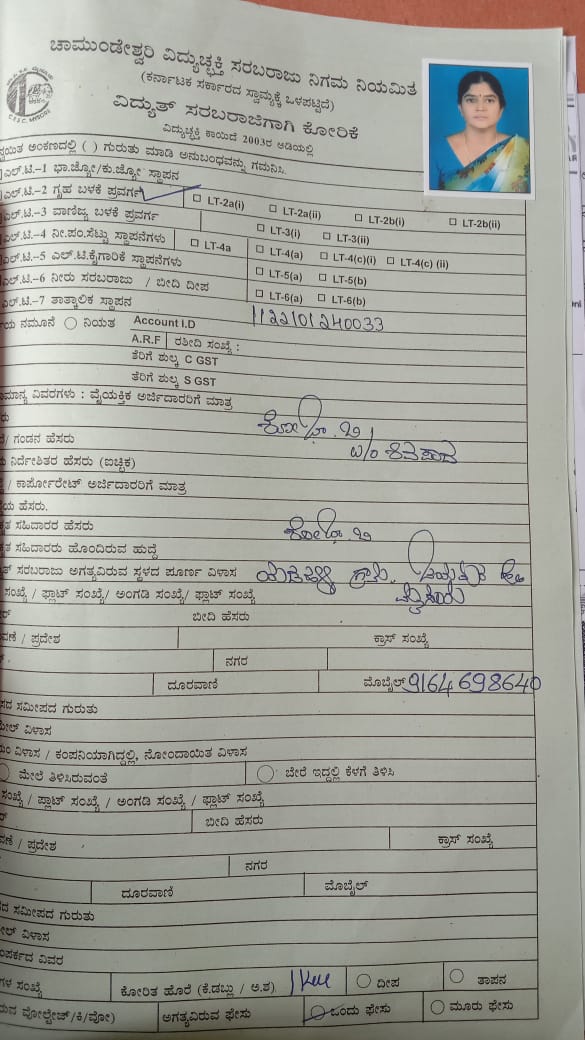 ಚಾಮುಂಡೇಶ್ವರಿ ವಿದ್ಯುಚ್ಛಕ್ತಿ ಸರಬರಾಜು ನಿಗಮ ನಿಯಮಿತ
(ಕರ್ನಾಟಕ ಸರ್ಕಾರದ ಸ್ವಾಮ್ಯಕ್ಕೆ ಒಳಪಟ್ಟಿದೆ)
ವಿದ್ಯುತ್ ಸರಬರಾಜಿಗಾಗಿ ಕೋರಿಕೆ
ವಿದ್ಯುಚ್ಛಕ್ತಿ ಕಾಯಿದೆ 2003ರ ಅಡಿಯಲ್ಲಿ
ಅಂಕಣದಲ್ಲಿ ( ) ಗುರುತು ಮಾಡಿ ಅನುಬಂಧವನ್ನು ಗಮನಿಸಿ.
ಎಲ್.ಟಿ.-1 ಭಾ.ಜ್ಯೋ/ಕು.ಜ್ಯೋ ಸ್ಥಾಪನ
ಎಲ್.ಟಿ.-2 ಗೃಹ ಬಳಕೆ ಪ್ರವರ್ಗ LT-2a(i) LT-2a(ii) LT-2b(i) LT-2b(ii)
ಎಲ್.ಟಿ.-3 ವಾಣಿಜ್ಯ ಬಳಕೆ ಪ್ರವರ್ಗ LT-3(i) LT-3(ii)
ಎಲ್.ಟಿ.-4 ನೀ.ಪಂ.ಸೆಟ್ಟು ಸ್ಥಾಪನೆಗಳು LT-4a LT-4(a) LT-4(c)(i) LT-4(c) (ii)
ಎಲ್.ಟಿ.-5 ಎಲ್.ಟಿ.ಕೈಗಾರಿಕೆ ಸ್ಥಾಪನೆಗಳು LT-5(a) LT-5(b)
ಎಲ್.ಟಿ.-6 ನೀರು ಸರಬರಾಜು / ಬೀದಿ ದೀಪ LT-6(a) LT-6(b)
ಎಲ್.ಟಿ.-7 ತಾತ್ಕಾಲಿಕ ಸ್ಥಾಪನ
ನಮೂನೆ ನಿಯತ Account I.D 1122101240033
A.R.F ರಶೀದಿ ಸಂಖ್ಯೆ :
ತೆರಿಗೆ ಶುಲ್ಕ C GST
ತೆರಿಗೆ ಶುಲ್ಕ S GST
ವಿವರಗಳು : ವೈಯಕ್ತಿಕ ಅರ್ಜಿದಾರರಿಗೆ ಮಾತ್ರ
/ ಗಂಡನ ಹೆಸರು W/o
ನಿರ್ದೇಶಿತರ ಹೆಸರು (ಐಚ್ಛಿಕ)
/ ಕಾರ್ಪೋರೇಟ್ ಅರ್ಜಿದಾರರಿಗೆ ಮಾತ್ರ
ಹೆಸರು.
ಸಹಿದಾರರ ಹೆಸರು
ಸಹಿದಾರರು ಹೊಂದಿರುವ ಹುದ್ದೆ
ಸರಬರಾಜು ಅಗತ್ಯವಿರುವ ಸ್ಥಳದ ಪೂರ್ಣ ವಿಳಾಸ ಗ್ರಾಮ
ಸಂಖ್ಯೆ / ಫ್ಲಾಟ್ ಸಂಖ್ಯೆ/ ಅಂಗಡಿ ಸಂಖ್ಯೆ/ ಫ್ಲಾಟ್ ಸಂಖ್ಯೆ
ಬೀದಿ ಹೆಸರು
/ ಪ್ರದೇಶ ಕ್ರಾಸ್ ಸಂಖ್ಯೆ
ನಗರ
ದೂರವಾಣಿ ಮೊಬೈಲ್ 9164698640
ಸಮೀಪದ ಗುರುತು
ವಿಳಾಸ
ವಿಳಾಸ / ಕಂಪನಿಯಾಗಿದ್ದಲ್ಲಿ, ನೋಂದಾಯಿತ ವಿಳಾಸ
ಮೇಲೆ ತಿಳಿಸಿರುವಂತೆ ಬೇರೆ ಇದ್ದಲ್ಲಿ ಕೆಳಗೆ ತಿಳಿಸಿ
ಸಂಖ್ಯೆ / ಫ್ಲಾಟ್ ಸಂಖ್ಯೆ / ಅಂಗಡಿ ಸಂಖ್ಯೆ / ಫ್ಲಾಟ್ ಸಂಖ್ಯೆ
ಬೀದಿ ಹೆಸರು
/ ಪ್ರದೇಶ ಕ್ರಾಸ್ ಸಂಖ್ಯೆ
ನಗರ
ದೂರವಾಣಿ ಮೊಬೈಲ್
ಸಮೀಪದ ಗುರುತು
ವಿಳಾಸ
ವಿವರ
ಸಂಖ್ಯೆ ಕೋರಿತ ಹೊರೆ (ಕೆ.ಡಬ್ಲು / ಅ.ಶ) ದೀಪ ತಾಪನ
ವೋಲ್ಟೇಜ್/ಕಿ/ವೋ) ಅಗತ್ಯವಿರುವ ಫೇಸು ಒಂದು ಫೇಸು ಮೂರು ಫೇಸು